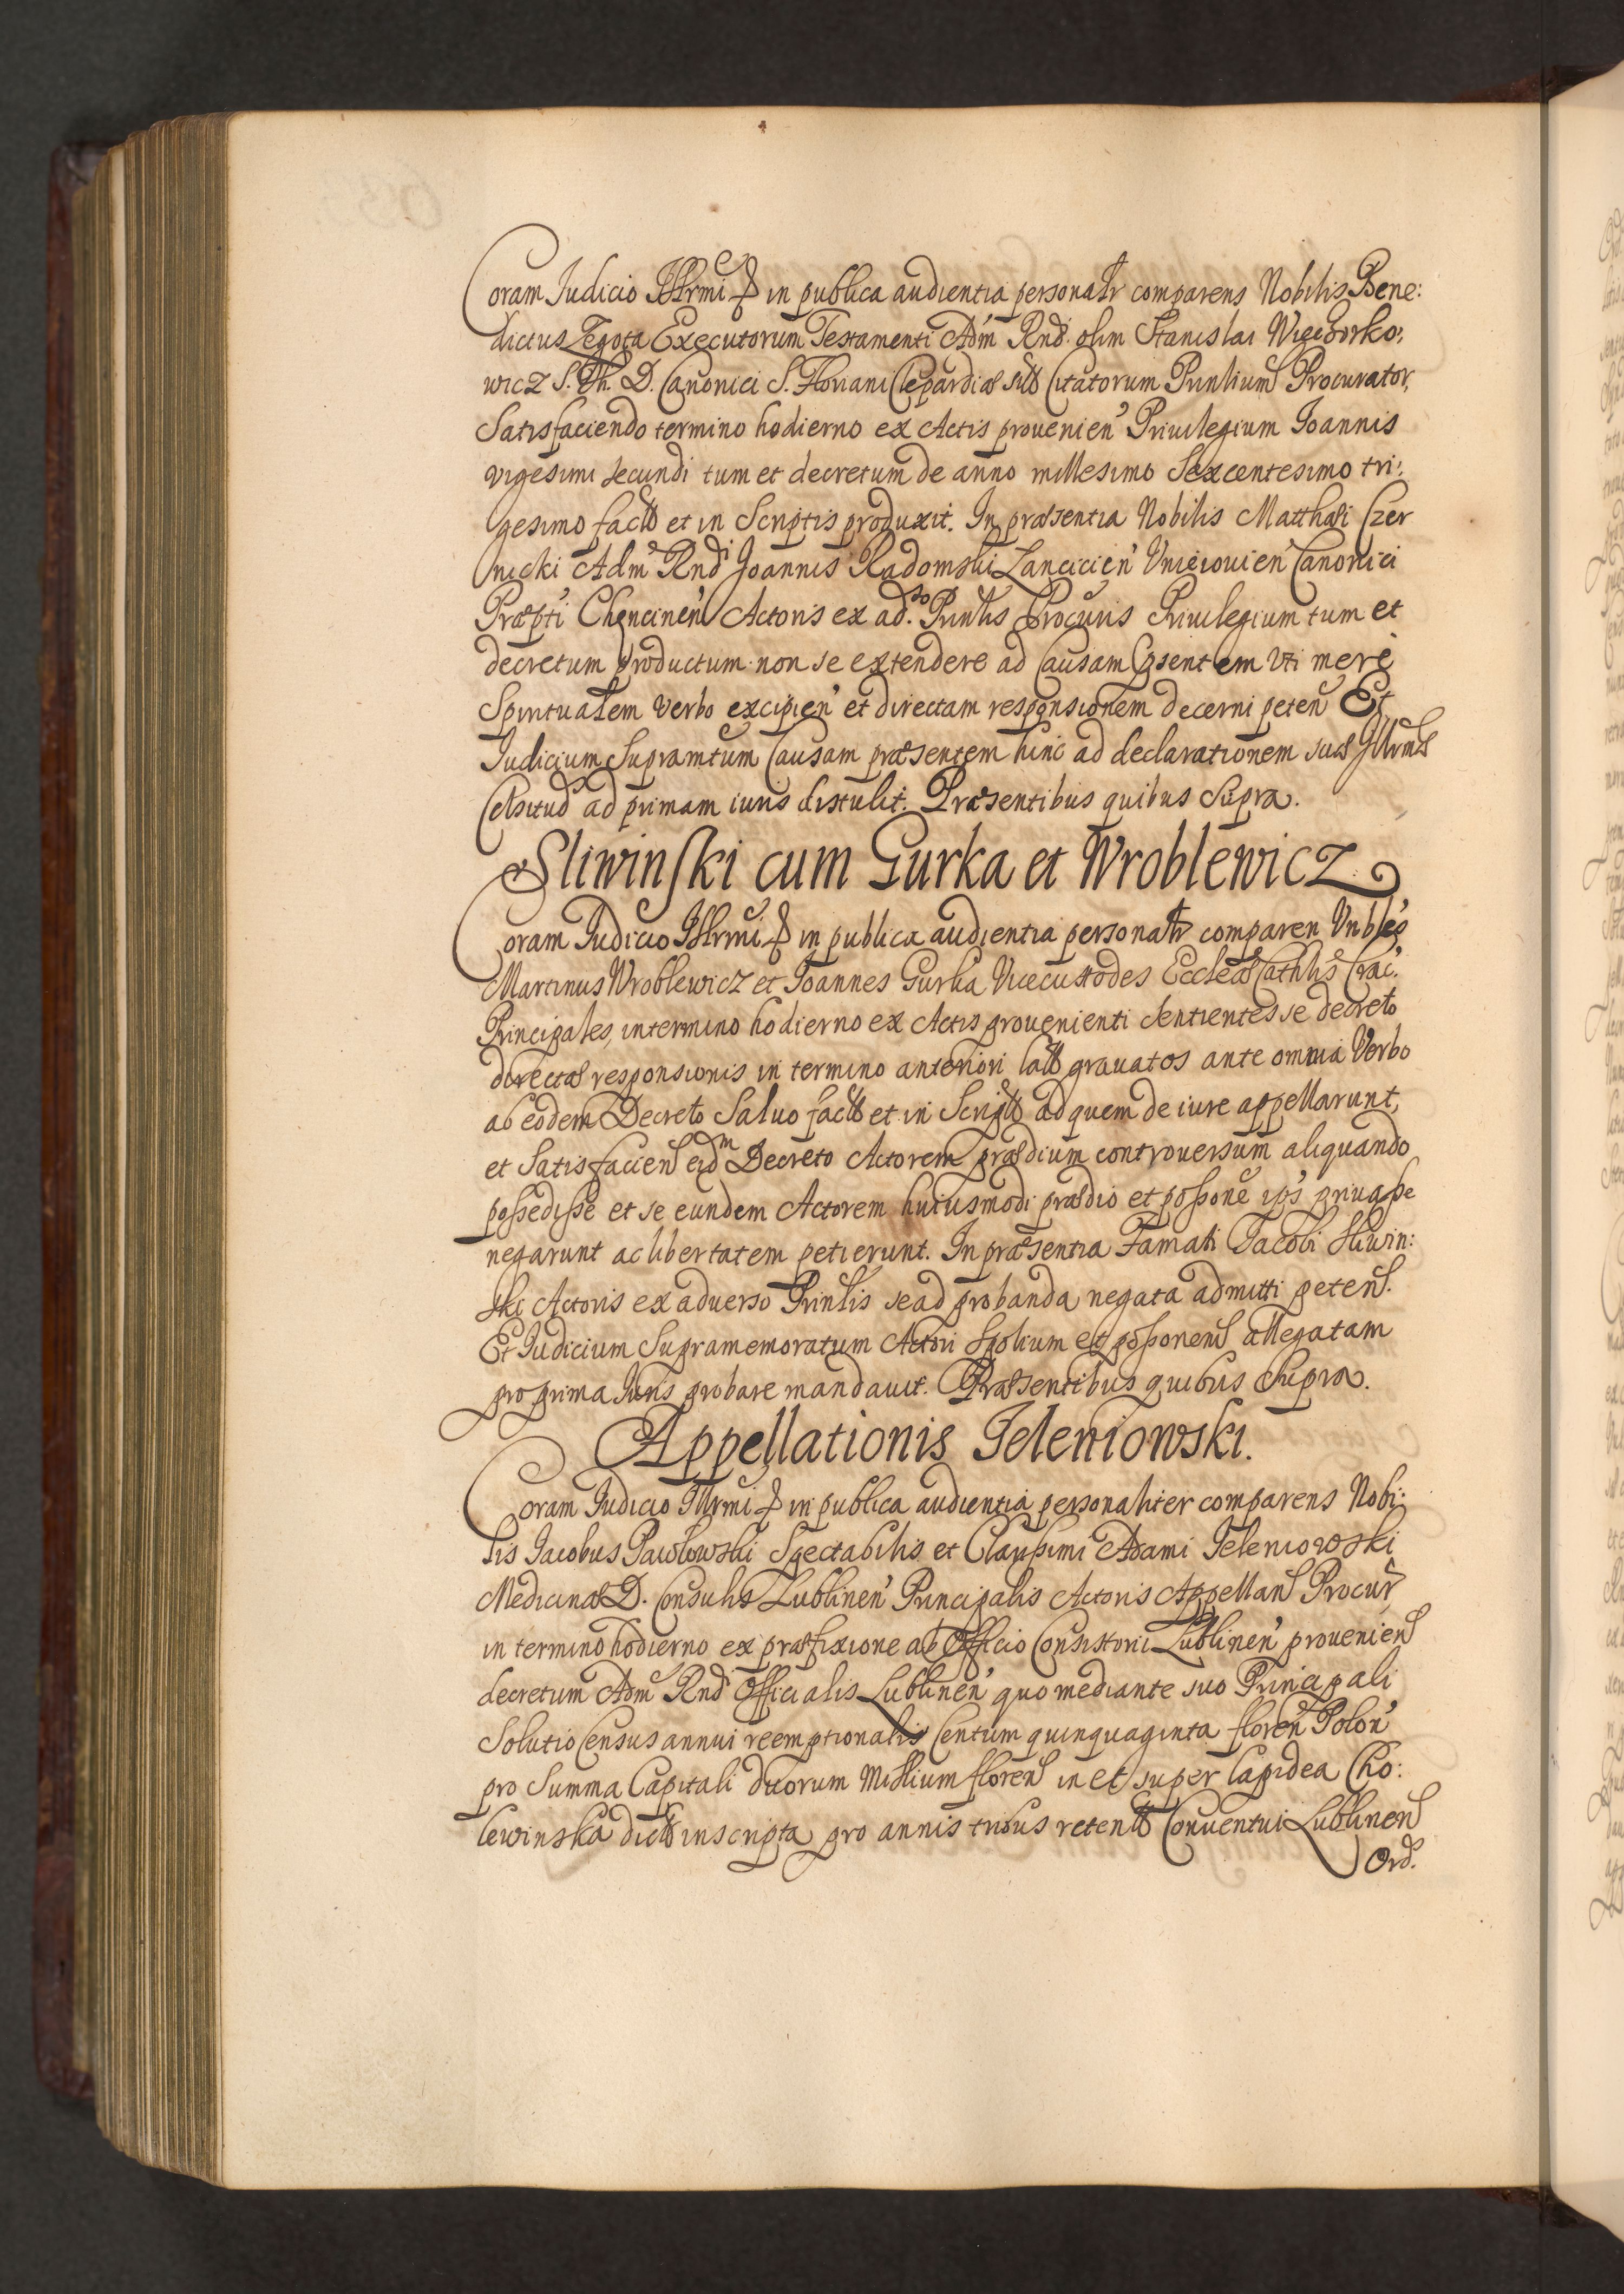 Coram Judicio Illrmi & in publica audientia personalr comparens Nobilis Bene:
dictus Zegota Executorum Testamenti Adm Rnd. olim Stanislai
wicz S. Th. D. Canonici S. Floriani Clepardiae Citatorum Prinlium Procurator,
Satisfaciendo termino hodierno ex Actis provenien' Priuilegium Joannis
vigesimi secundi tum et decretum de anno millesimo Sexcentesimo tri:
gesimo facto et in Scriptis produxit. In praesentia Nobilis Matthaei Czer
nicki Adm Rndi Joannis Radomski Lancicien' Vnieiouien' Canonici
Praepti Chencinen' Actoris ex adso. Prinlis Procuris Priuilegium tum et
decretum productum non se extendere ad Causam psentem vti mere
Spiritualem verbo excipien' et directam responsionem decerni peten' Et
Judicium Supramtum Causam praesentem hinc ad declarationem suae Illrmae
Celsitud ad primam iuris distulit. Praesentibus quibus Supra.
Sliwinski cum Gurka et Wroblewicz
Coram Judicio Illrmi & in publica audientia personalr comparen Vnbles
Martinus Wroblewicz et Joannes Gurka Vicecustodes Eccleae Cathlis Crac.
Principales, in termino hodierno ex Actis prouenienti sentientes se decreto
directae responsionis in termino anteriori lato grauatos ante omnia Verbo
ab eodem Decreto Saluo facto et in Scripto ad quem de iure appellarunt,
et Satisfacien eidm Decreto Actorem praedium controuersum aliquando
possedisse et se eundem Actorem huiusmodi praedio et possone ips' priuasse
negarunt ac libertatem petierunt. In praesentia Famati Jacobi Sliwin:
ski Actoris ex aduerso Prinlis se ad probanda negata admitti peten.
Et Judicium Supramemoratum Actori Spolium et possonem allegatam
pro prima Juris probare mandauit. Praesentibus quibus Supra.
Appellationis Jeleniowski.
Coram Judicio Illrmi & in publica audientia personaliter comparens Nobi:
lis Jacobus Pawlowski Spectabilis et Clarissimi Adami Jeleniowski
Medicinae D. Consulis Lublinen' Principalis Actoris Appellan Procur
in termino hodierno ex praefixione ab Officio Consistorii Lublinen' prouenien
decretum Adm Rnd Officialis Lublinen' quo mediante suo Principali
Solutio Census annui reemptionalis Centum quinquaginta floren' Polon'
pro Summa Capitali duorum Millium floren in et super lapidea Cho:
lewinska dicta inscripta pro annis tribus retenta Conuentui Lublinen
Ord.